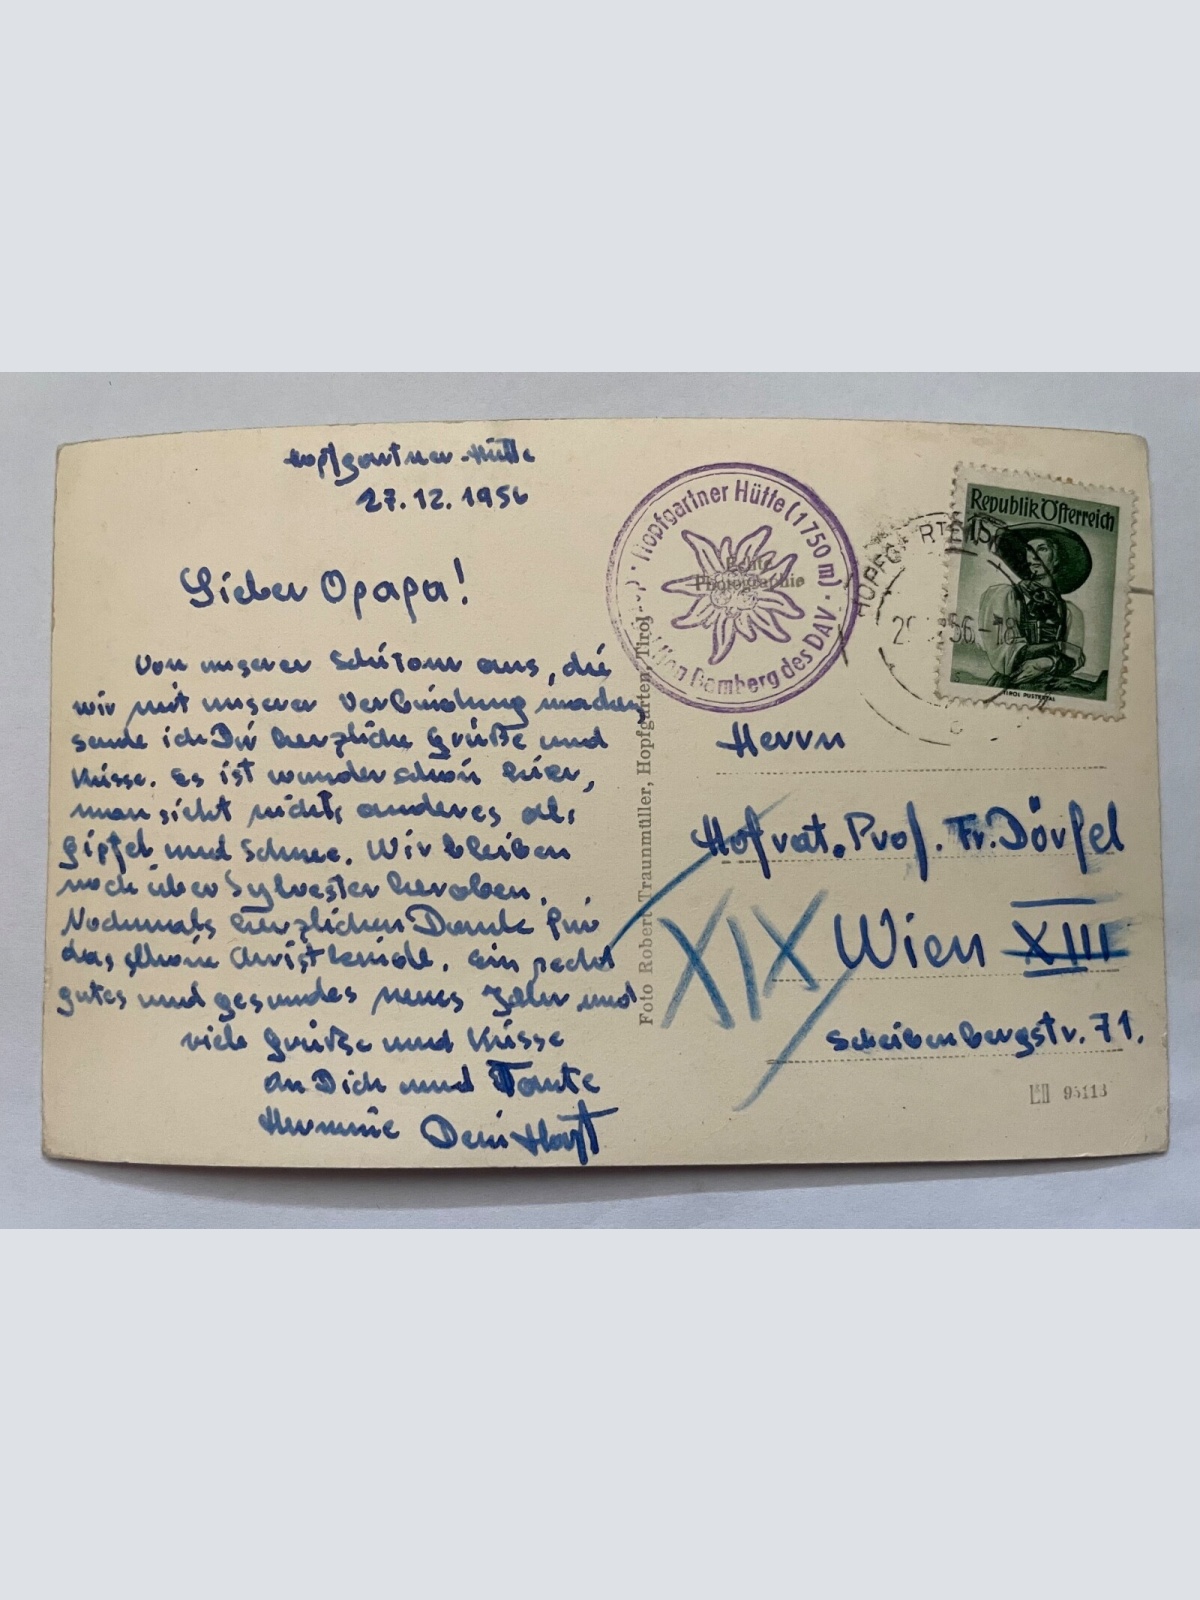 Hopfgartner-Hütte
27.12.1956
Lieber Opapa!
Von unserer Schitour aus, die
wir mit unserer Verbindung machen,
sende ich Dir herzliche Grüße und
Küsse. Es ist wunderschön hier,
man sieht nichts anderes als
Gipfel und Schnee. Wir bleiben
noch über Sylvester heroben.
Nochmals herzlichen Dank für
das schöne Christkindl. Ein recht
gutes und gesundes neues Jahr und
viele Grüße und Küsse
an Dich und Tante
Hermine Dein Horst
Foto Robert Traunmüller, Hopfgarten, Tirol
Hopfgartner Hütte (1750 m)
Bamberg des DAV
Echte
Photographie
HOPFGARTEN
56-18
Republik Österreich
TIROL PUSTERTAL
Herrn
Hofrat. Prof. Fr. Dörfel
XIX Wien XIII
Scheibenbergstr. 71.
95113